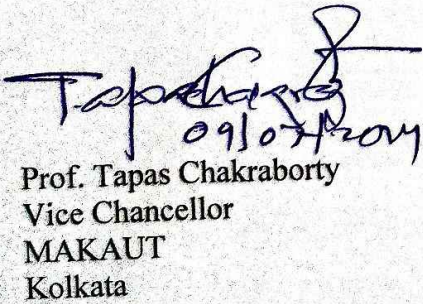 09/07/2024
Prof. Tapas Chakraborty
Vice Chancellor
MAKAUT
Kolkata